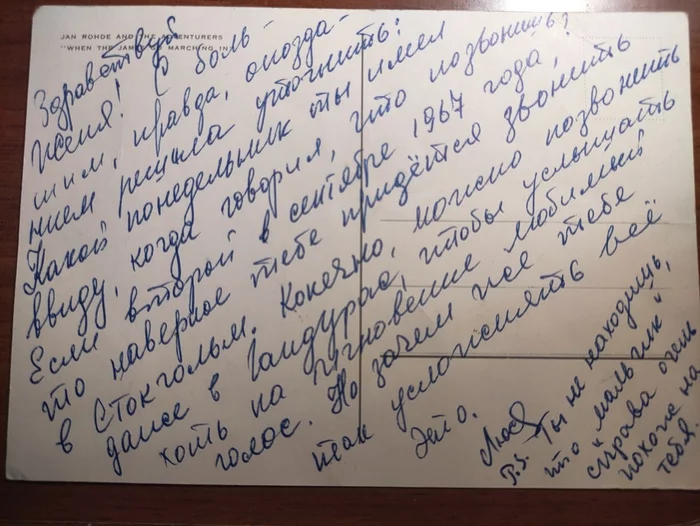 JAN ROHDE AND THE ADVENTURERS
"WHEN THE JAMES MARCHING IN"
Здравствуй
Женя! С боль-
шим, правда, опозда-
нием решила уточнить:
Какой понедельник ты имел
ввиду, когда говорил, что позвонишь?
Если второй в сентябре 1967 года,
то наверное тебе придётся звонить
в Стокгольм. Конечно, можно позвонить
даже в Гондурас, чтобы услышать
хоть на мгновение любимый
голос. Но зачем же тебе
так усложнять всё
это.
Люся
P.S. Ты не находишь,
что "мальчик"
справа очень
похож на
тебя.